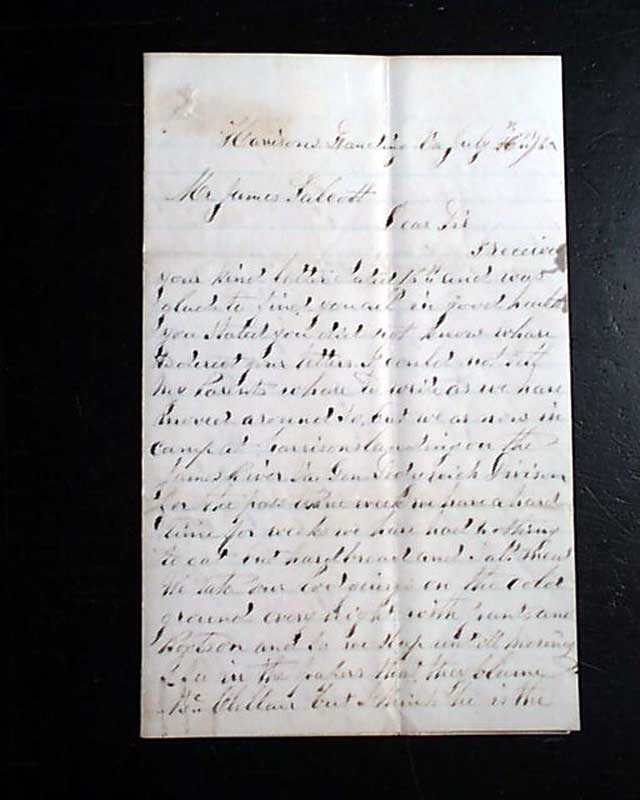 Harrisons Landing Va July
Mr James Talcott
Dear Sir
I receive
your kind letter dated and was
glad to find you all in good health
you stated you did not know whare
to direct your letters I could not tell
my Parents whare to write as we have
moved around so, but we ar now in
camp at Harrisons landing on the
James River Va Gen Sedgwick Divison
for the pass week we have a hard
time for weeks we have had nothing
to eat but hard bread and salt meat
We take our lodgings on the cold
ground every night with pants and
Boots on and so we sleep until morning
I in the papers that they blame
Mc Clellan but I think he is the